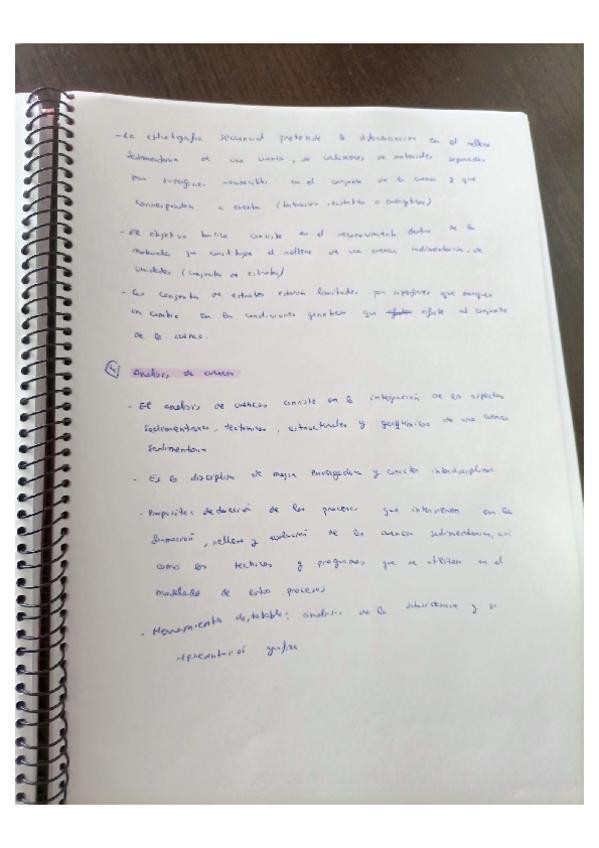 - La estratigrafía secuencial pretende la diferenciación en el relleno
sedimentario de una cuenca, de volúmenes de materiales separados
por superficies reconocibles en el conjunto de la cuenca y que
corresponden a eventos (tectónicos, eustáticos o
- El objetivo básico consiste en el reconocimiento dentro de los
materiales que constituyen el relleno de una cuenca sedimentaria, de
unidades (conjuntos de estratos)
- Los conjuntos de estratos estarán limitados por superficies que marquen
un cambio en las condiciones genéticas que afecte al conjunto
de la cuenca.
4 Análisis de cuencas
- El análisis de cuencas consiste en la integración de los aspectos
sedimentarios, tectónicos, estructurales y de una cuenca
sedimentaria
- Es la disciplina de mayor envergadura y carácter interdisciplinar
- Propósitos: deducción de los procesos que intervienen en la
formación, relleno y evolución de las cuencas sedimentarias, así
como las técnicas y programas que se utilizan en el
modelado de estos procesos
- Herramienta destacable: análisis de la subsidencia y su
representación gráfica